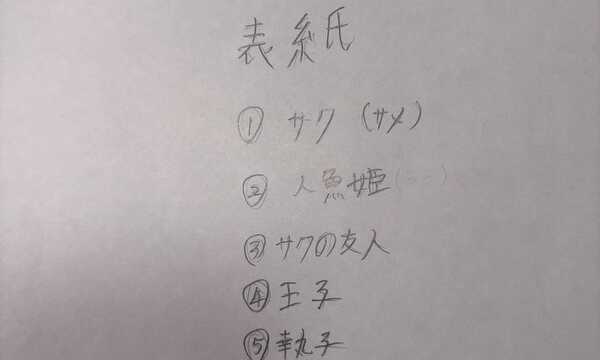 表紙
① サク (サメ)
② 人魚姫
③ サクの友人
④ 王子
⑤ 執子